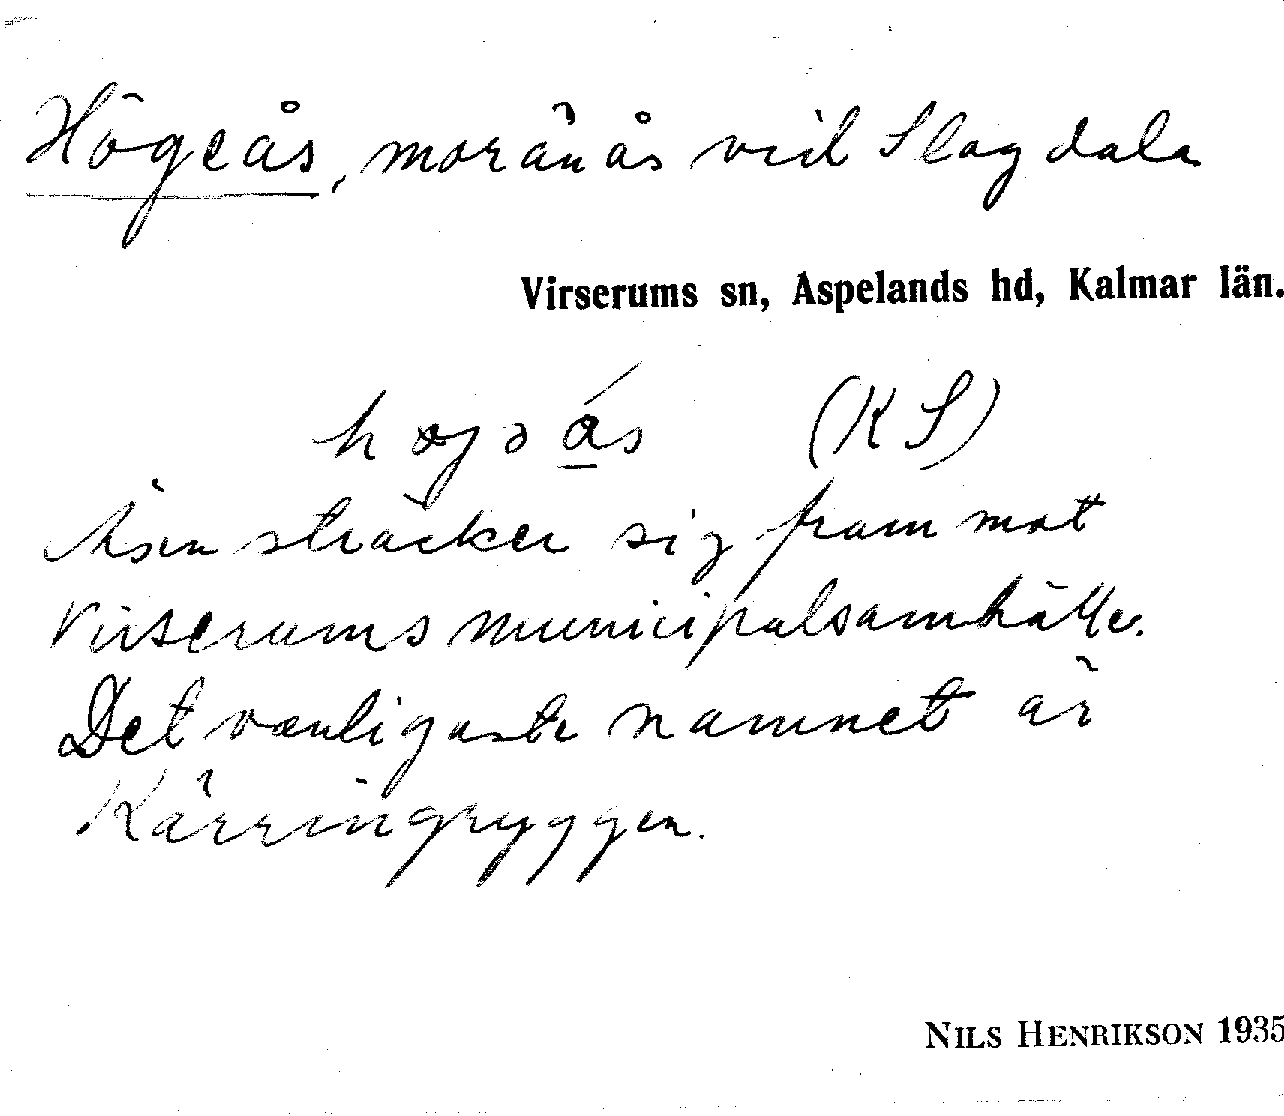 Högeås, moränås vid Slagdala
Virserums sn, Aspelands hd, Kalmar län.
(KS)
Åsen sträcker sig fram mot
Virserums municipalsamhälle.
Det vanligaste namnet är
Kärringryggen.
NILS HENRIKSON 1935